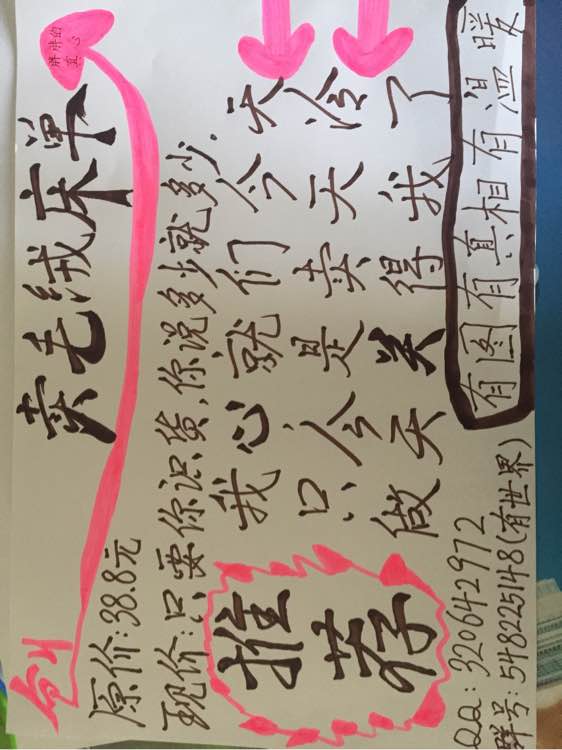 创
卖毛绒床单
胖胖的
真心
原价:38.8元
现价:只要你识货,你说多少就多少.
天冷了
今天我
们卖得
就是关
心,今天
我只做
推荐
有图有真相有温暖
QQ:320642972
群号:548225148(有世界)